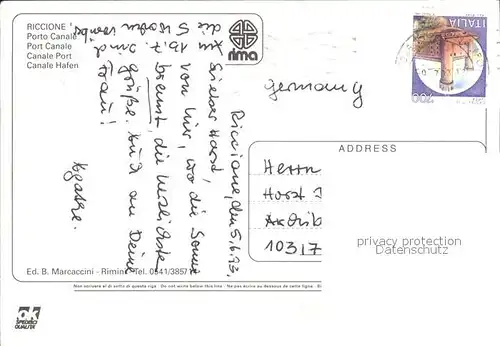 RICCIONE
Porto Canale
Port Canale
Canale Port
Canale Hafen
rima
ITALIA
700
germany
Riccione, den 5.6.93.
Lieber Horst,
von hier, wo die Sonne
brennt, die herzlichsten
Grüße. Auch an Deine
Frau!
Am 16.7. sind
die 5 Wochen vorbei
ADDRESS
Herrn
Horst
10317
privacy protection
Datenschutz
Ed. B. Marcaccini - Rimini - Tel. 0541/3857
Non scrivere al di sotto di questa riga - Do not write below this line - Ne pas écrire au dessous de cette ligne
ok
SPEDISCI
QUALITÀ